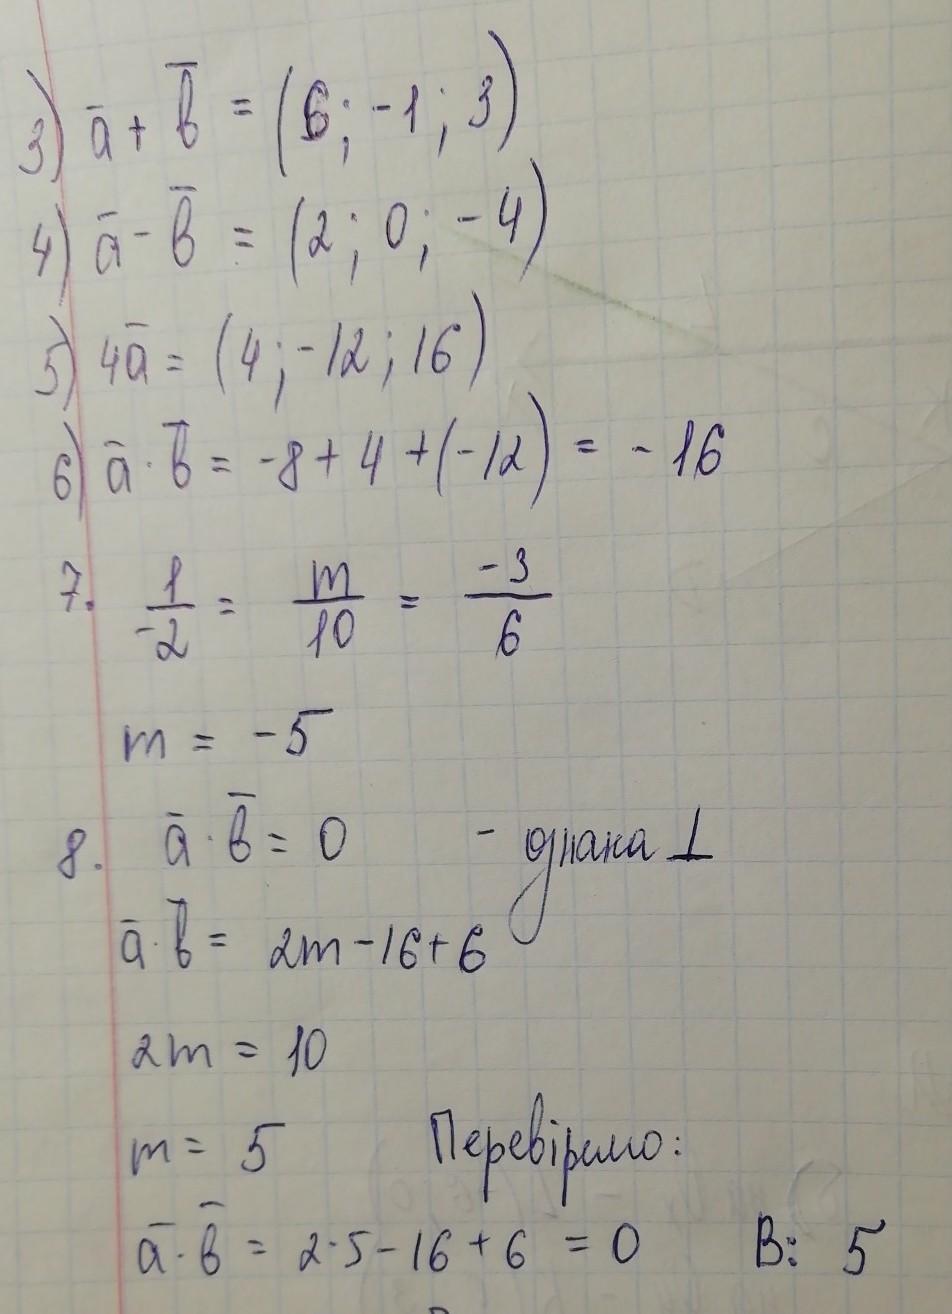 3) a̅ + b̅ = (6; -1; 3)
4) a̅ - b̅ = (2; 0; -4)
5) 4a̅ = (4; -12; 16)
6) a̅ · b̅ = -8 + 4 + (-12) = -16
7. 1/-2 = m/10 = -3/6
m = -5
8. a̅ · b̅ = 0 - ознака ⊥
a̅ · b̅ = 2m - 16 + 6
2m = 10
m = 5 Перевіримо:
a̅ · b̅ = 2·5 - 16 + 6 = 0 В: 5